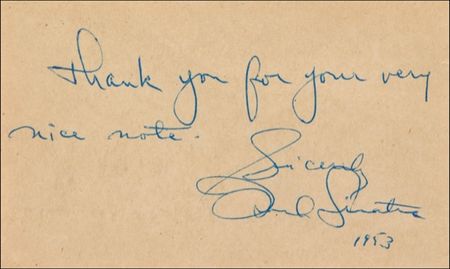 Thank you for your very
nice note.
Sincerely
Frank Sinatra
1953